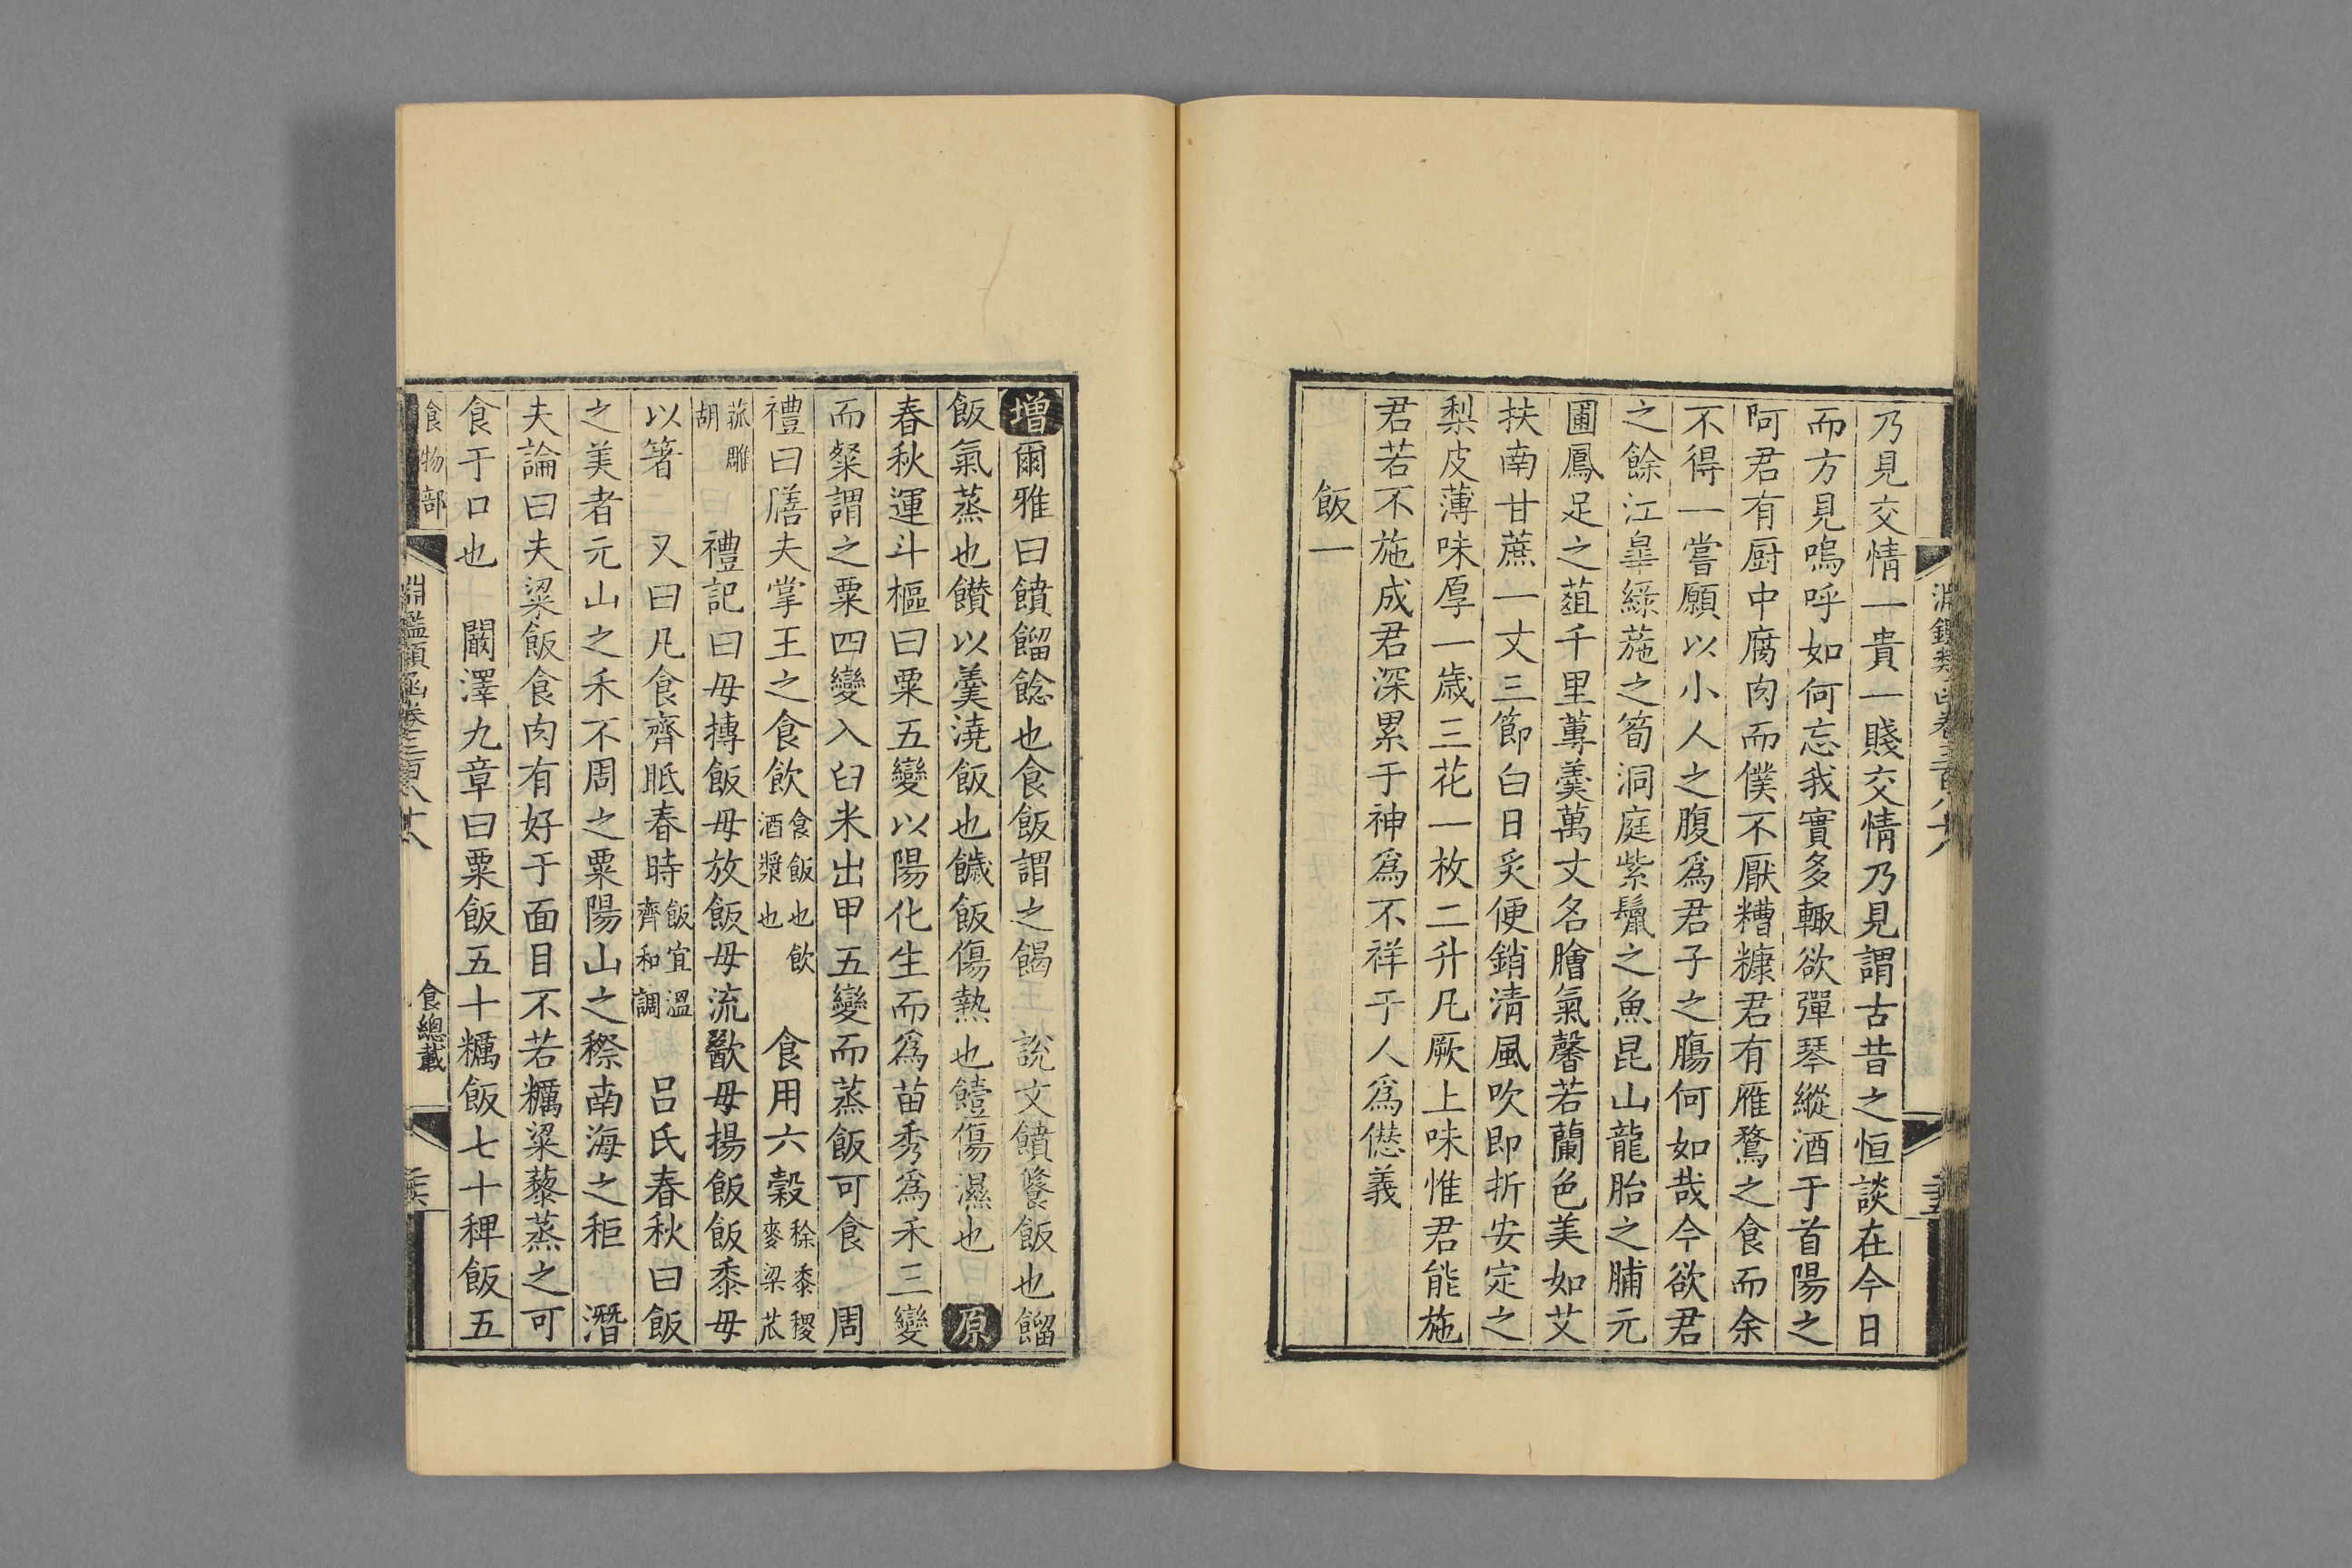 乃見交情一貴一賤交情乃見謂古昔之恒談在今日
而方見嗚呼如何忘我實多輙欲彈琴縱酒于首陽之
阿君有厨中腐肉而僕不厭糟糠君有雁鶩之食而余
不得一嘗願以小人之腹爲君子之腸何如哉今欲君
之餘江皐綠葹之筍洞庭紫鬛之魚昆山龍胎之脯元
圃鳳足之葅千里蓴羹萬丈名膾氣馨若蘭色美如艾
扶南甘蔗一丈三節白日炙便銷清風吹即折安定之
梨皮薄味厚一歲三花一枚二升凡厥上味惟君能施
君若不施成君深累于神爲不祥于人爲僁義
飯一
增爾雅曰饙餾餁也食飯謂之餲 說文饙餐飯也餾
飯氣蒸也饡以羹澆飯也饖飯傷熱也饐傷濕也 原
春秋運斗樞曰粟五變以陽化生而爲苗秀爲禾三變
而粲謂之粟四變入臼米出甲五變而蒸飯可食 周
禮曰膳夫掌王之食飲食飯也飲酒漿也 食用六穀稌黍稷麥梁苽
苽雕胡 禮記曰毋摶飯毋放飯毋流歠毋揚飯飯黍毋
以箸 又曰凡食齊眡春時飯宜溫齊和調 呂氏春秋曰飯
之美者元山之禾不周之粟陽山之穄南海之秬 潛
夫論曰夫粱飯食肉有好于面目不若糲粢藜蒸之可
食于口也 闞澤九章曰粟飯五十糲飯七十稗飯五
食物部
淵鑑類函卷三百八十八
食總載